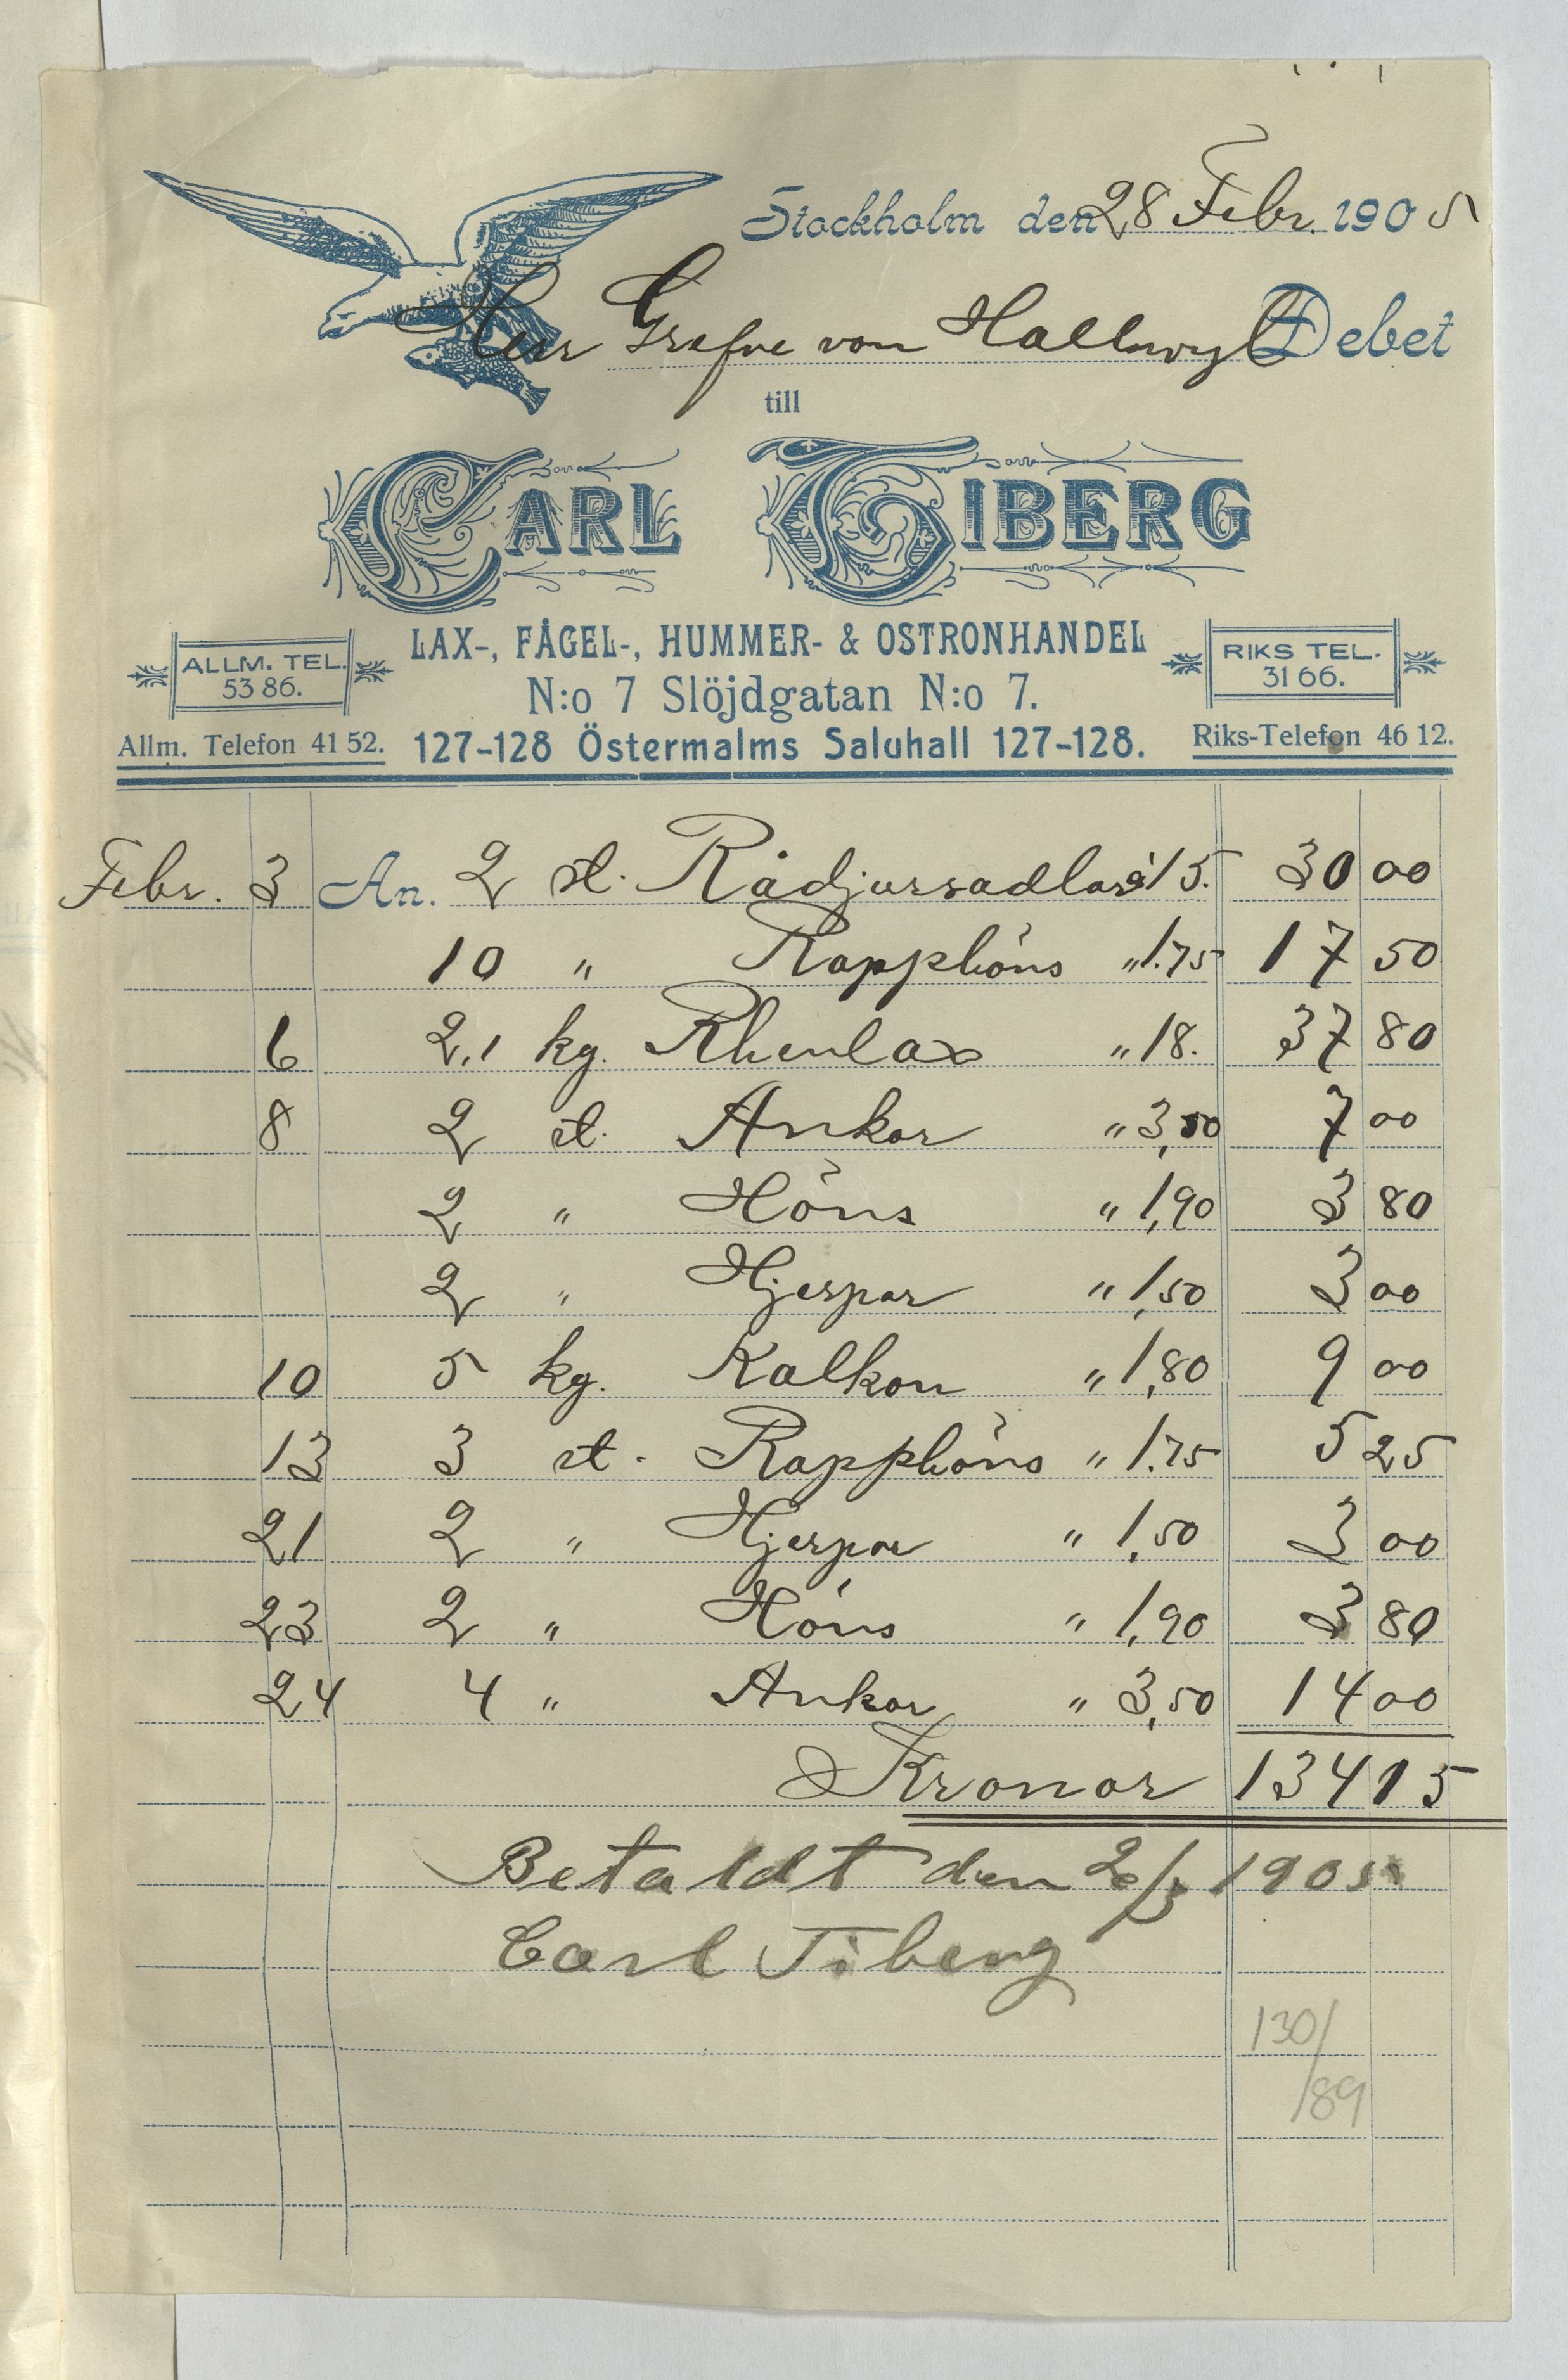 Stockholm den 28 Febr. 1905
Herr Grefve von Hallwyl Debet
till
CARL TIBERG
LAX-, FÅGEL-, HUMMER- & OSTRONHANDEL
ALLM. TEL. 53 86.
RIKS TEL. 31 66.
N:o 7 Slöjdgatan N:o 7.
Allm. Telefon 41 52. 127-128 Östermalms Saluhall 127-128. Riks-Telefon 46 12.
Febr. 3 An. 2 st. Rådjurssadlar à 15. 30 00
10 " Rapphöns " 1.75 17 50
6 2,1 kg. Rhenlax " 18. 37 80
8 2 st. Ankor " 3,50 7 00
2 " Höns " 1,90 3 80
2 " Hjerpar " 1,50 3 00
10 5 kg. Kalkon " 1,80 9 00
13 3 st. Rapphöns " 1.75 5 25
21 2 " Hjerpar " 1,50 3 00
23 2 " Höns " 1,90 3 80
24 4 " Ankor " 3,50 14 00
Kronor 134 15
Betaldt den 2/3 1905
Carl Tiberg
130/
/89